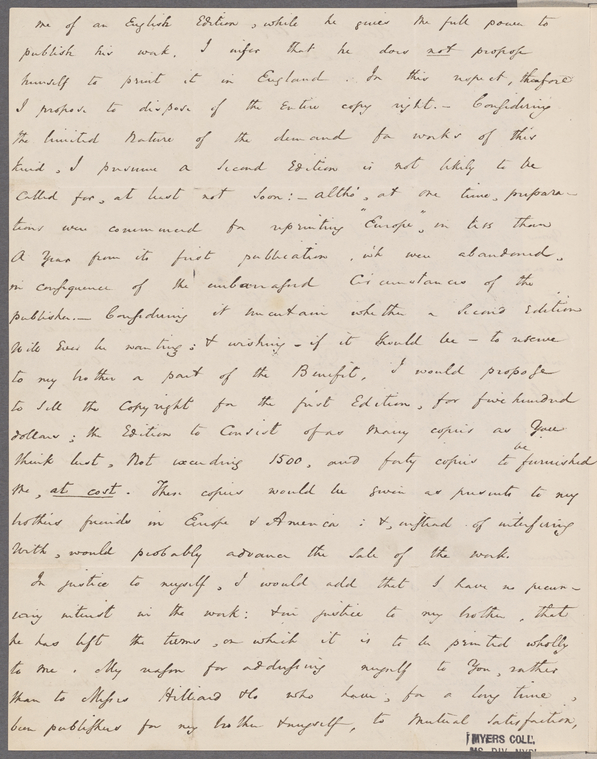 me of an English Edition, while he gives me full power to
publish his work, I infer that he does not propose
himself to print it in England. In this respect, therefore
I propose to dispose of the entire copy right. — Considering
the limited nature of the demand for works of this
kind, I presume a second Edition is not likely to be
called for, at least not soon: — altho', at one time, prepara-
tions were commenced for reprinting "Europe", in less than
a Year from its first publication, wh were abandoned,
in consequence of the embarrassed Circumstances of the
publisher. — Considering it uncertain whether a Second Edition
will ever be wanting; & wishing — if it should be — to reserve
to my brother a part of the Benefit, I would propose
to sell the Copyright for the first Edition, for five hundred
dollars; the Edition to Consist of as many copies as You
think best, not exceeding 1500, and forty copies to be furnished
me, at cost. These copies would be given as presents to my
brothers friends in Europe & America: &, instead of interfering
with, would probably advance the sale of the work.
In justice to myself, I would add that I have no pecun-
iary interest in the work: & in justice to my brother, that
he has left the terms, on which it is to be printed wholly
to me. My reason for addressing myself to You, rather
than to Messrs Hilliard & Co who have, for a long time,
been publishers for my brother & myself, to mutual satisfaction,
MYERS COLL.
MS. DIV. NYC